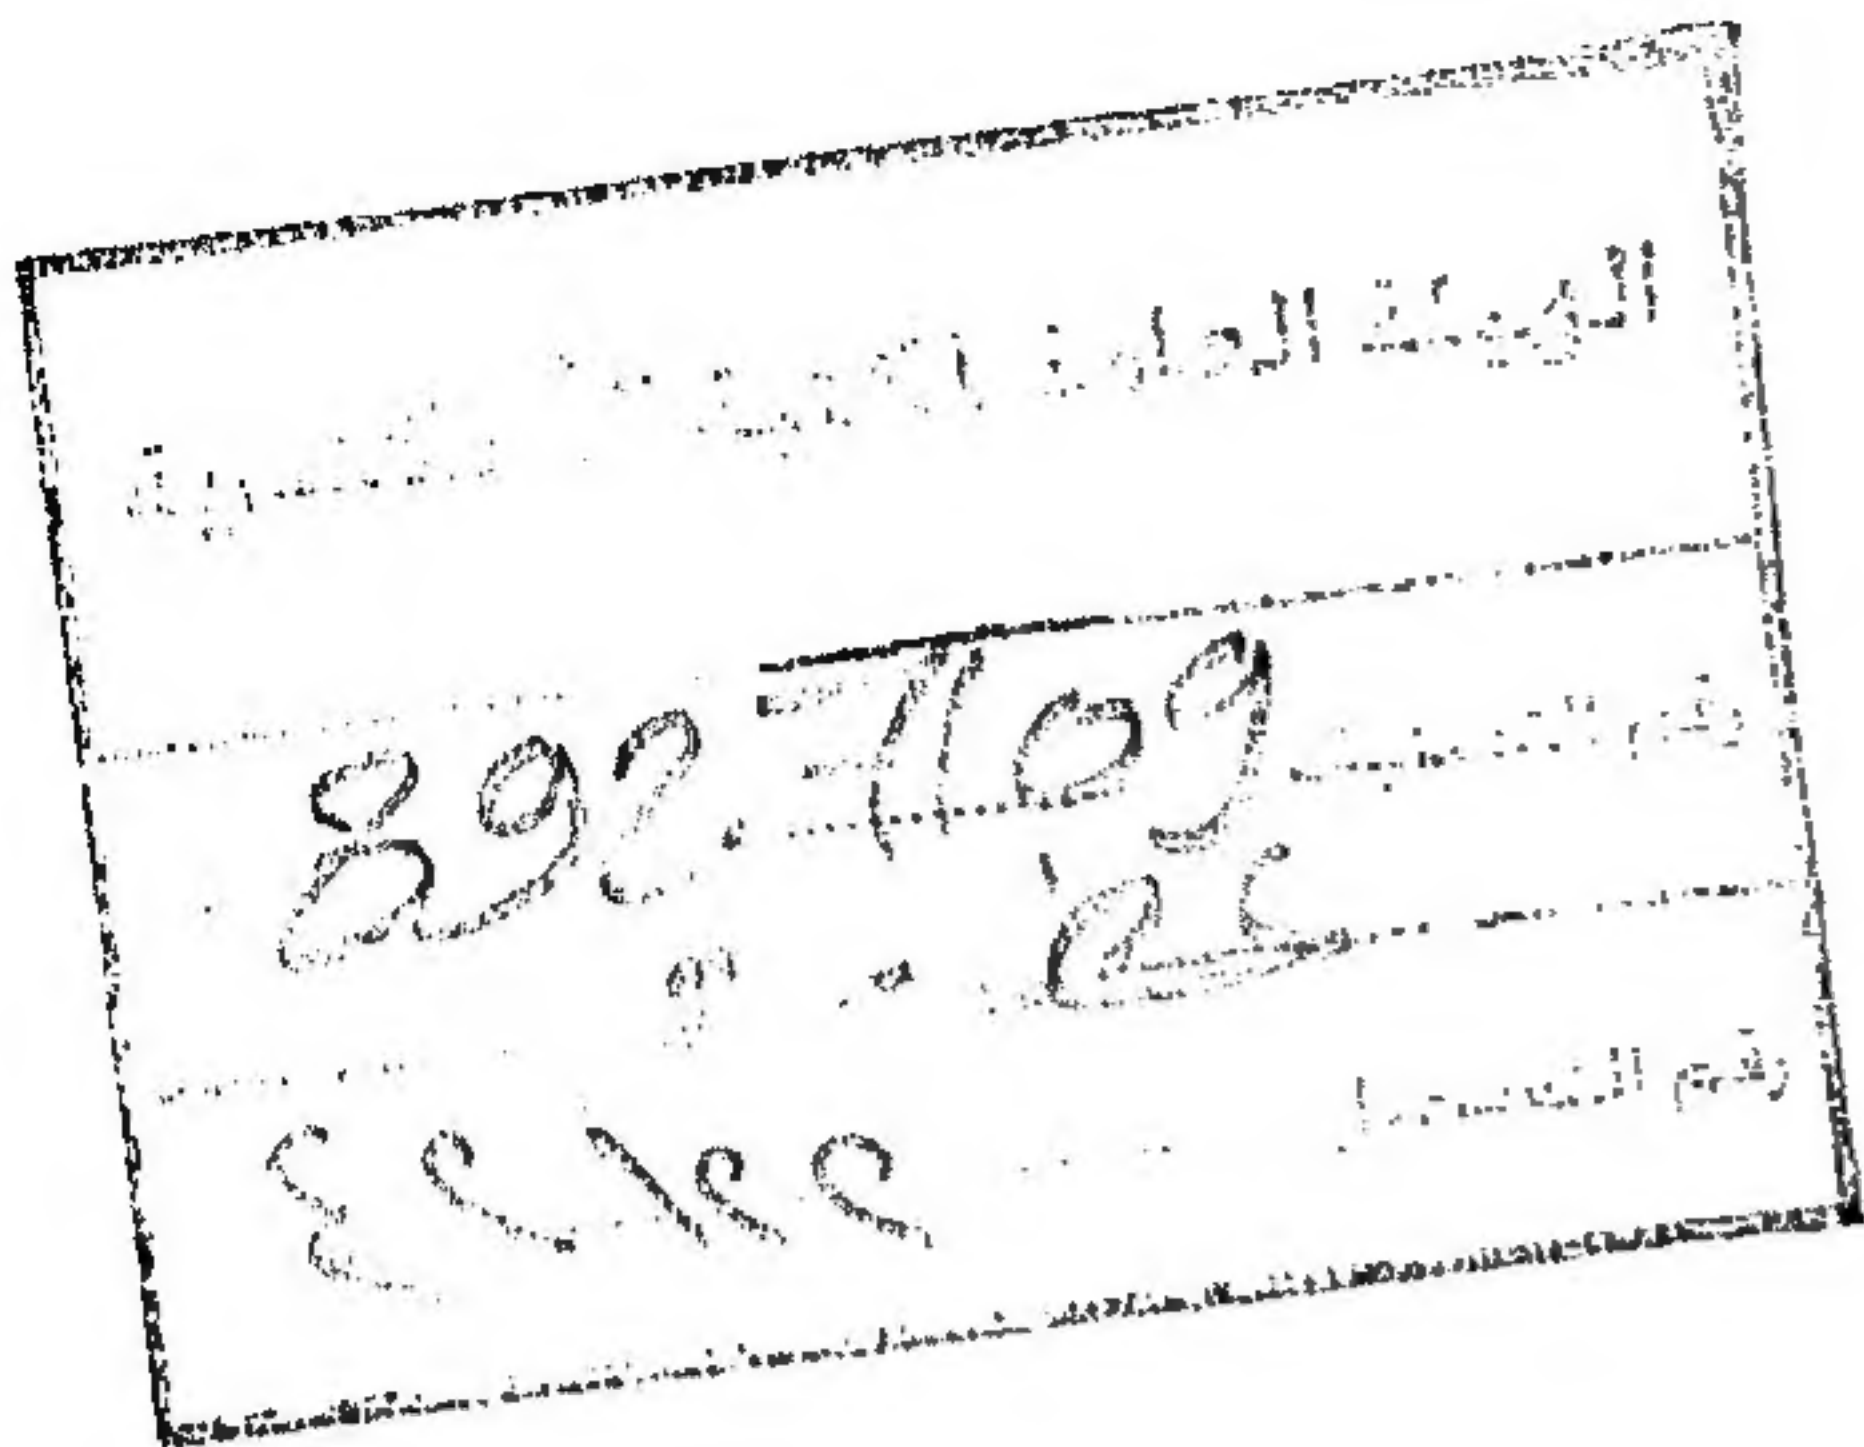 الهيئة العامة لمكتبة الإسكندرية
رقم التصنيف 892.7109
رقم التسجيل ٤٢١٢٢